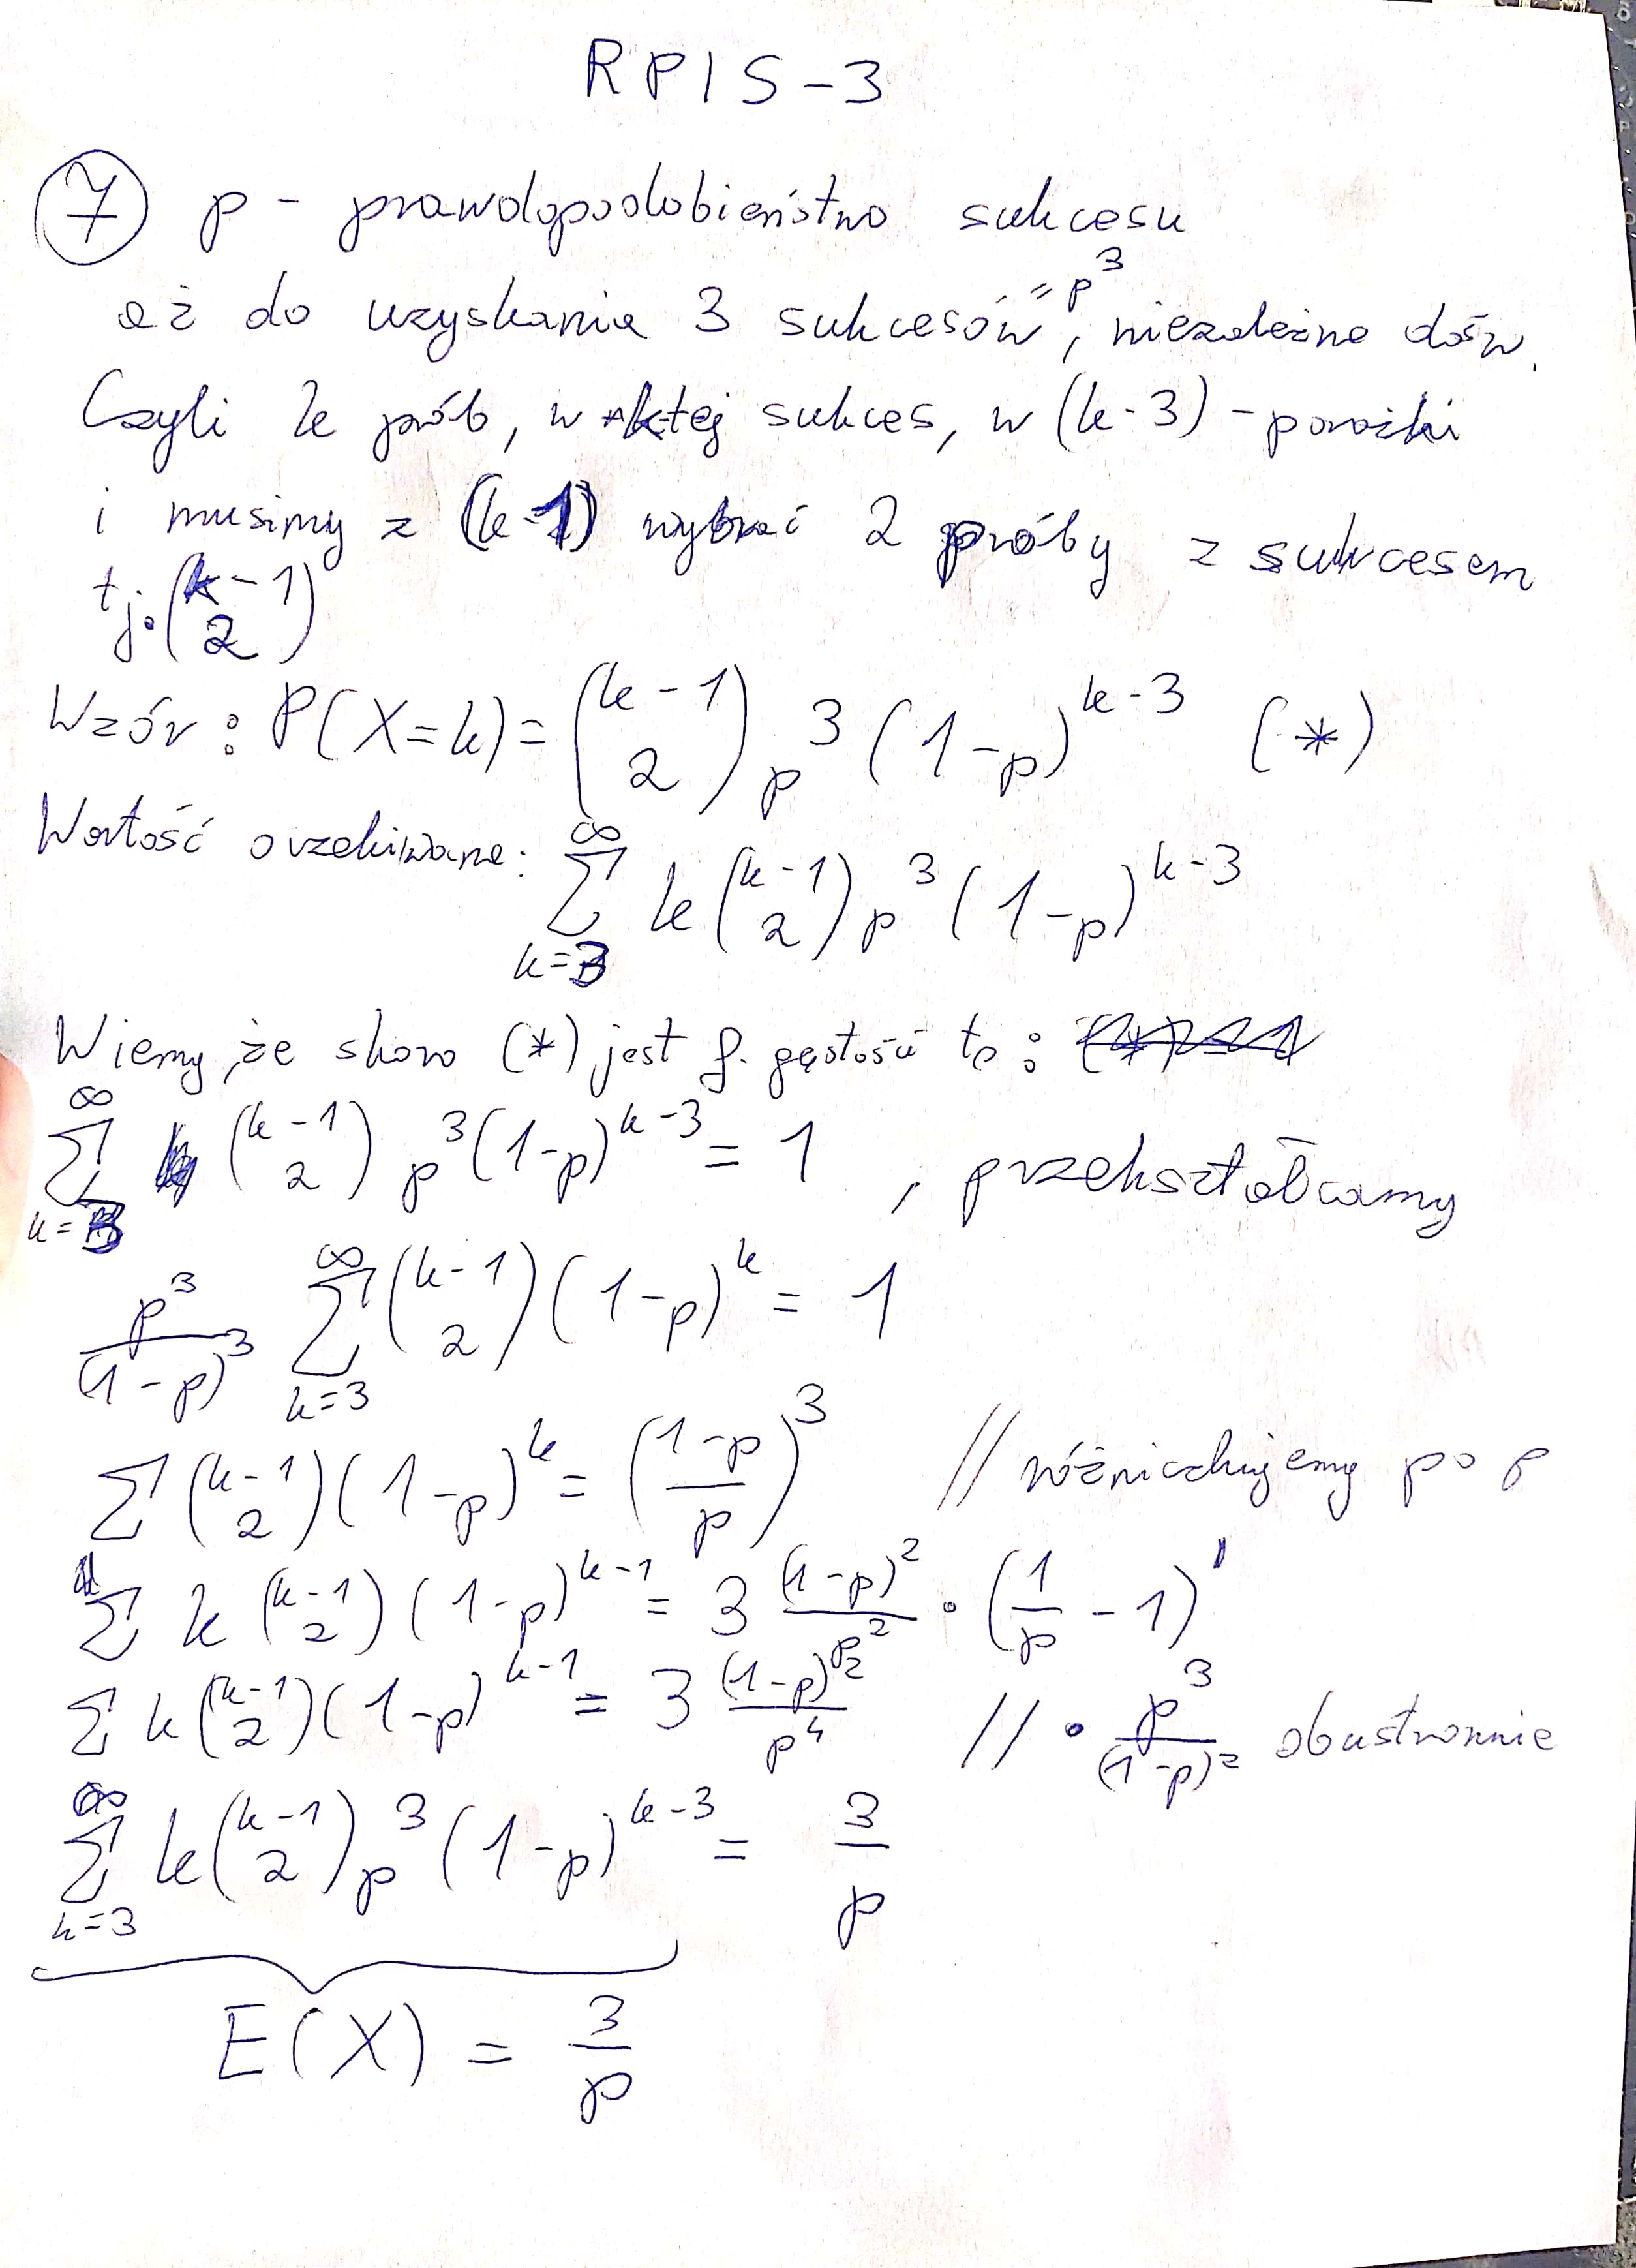 RPIS-3
7 p - prawdopodobieństwo sukcesu
aż do uzyskania 3 sukcesów = p^3, niezależne dośw.
Czyli k prób, w k-tej sukces, w (k-3) - porażki
i musimy z (k-1) wybrać 2 próby z sukcesem
tj. \binom{k-1}{2}
Wzór: P(X=k) = \binom{k-1}{2} p^3 (1-p)^{k-3} (*)
Wartość oczekiwana: \sum_{k=3}^{∞} k \binom{k-1}{2} p^3 (1-p)^{k-3}
Wiemy, że skoro (*) jest f. gęstości to:
\sum_{k=3}^{∞} \binom{k-1}{2} p^3 (1-p)^{k-3} = 1, przekształcamy
\frac{p^3}{(1-p)^3} \sum_{k=3}^{∞} \binom{k-1}{2} (1-p)^k = 1
\sum \binom{k-1}{2} (1-p)^k = (\frac{1-p}{p})^3 // różniczkujemy po p
\sum k \binom{k-1}{2} (1-p)^{k-1} = 3 \frac{(1-p)^2}{p^2} • (\frac{1}{p} - 1)'
\sum k \binom{k-1}{2} (1-p)^{k-1} = 3 \frac{(1-p)^2}{p^4} // • \frac{p^3}{(1-p)^2} obustronnie
\sum_{k=3}^{∞} k \binom{k-1}{2} p^3 (1-p)^{k-3} = \frac{3}{p}
E(X) = \frac{3}{p}